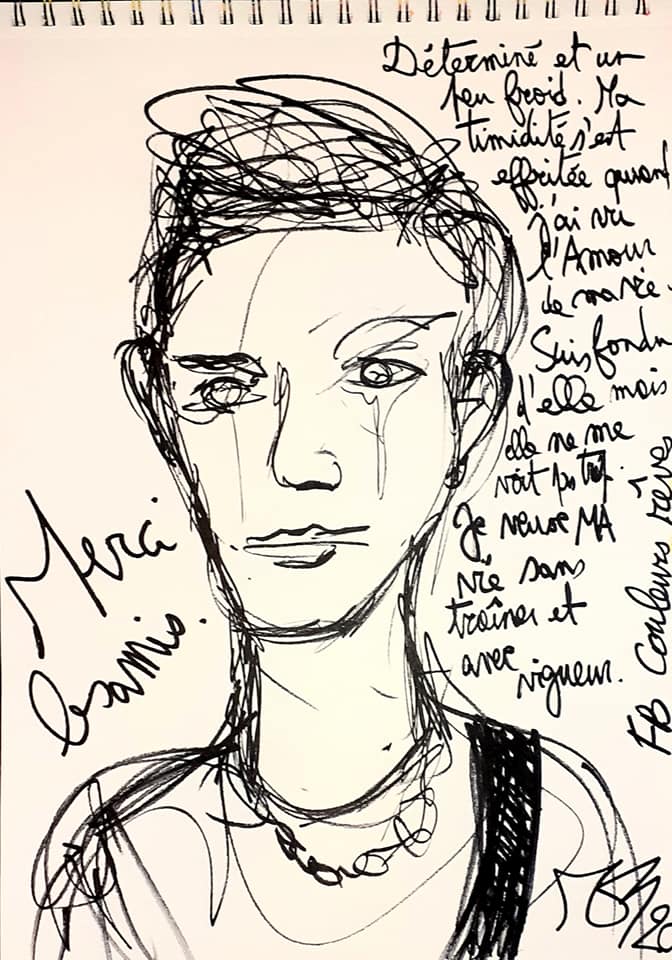 Déterminé et un
peu froid. Ma
timidité s'est
effritée quand
j'ai vu
l'Amour
de ma vie.
Suis fondu
d'elle mais
elle ne me
voit
Je veux MA
vie sans
traîner et
avec
vigueur.
Merci
les amis.
FB Couleurs rêves